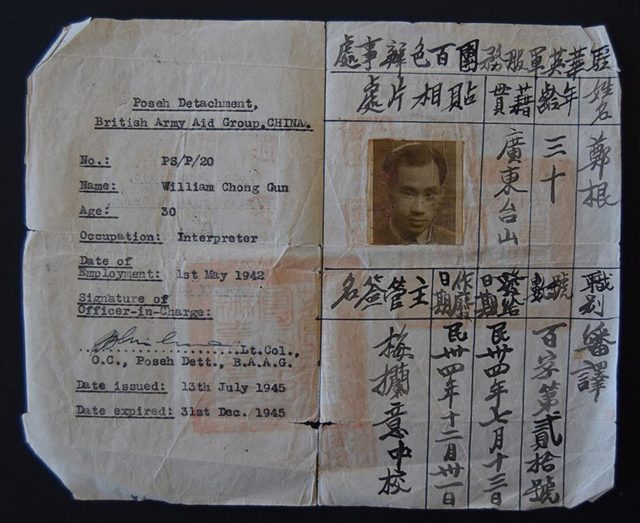 Poseh Detachment,
British Army Aid Group.CHINA.
No.: PS/P/20
Name: William Chong Gun
Age: 30
Occupation: Interpreter
Date of
Employment: 1st May 1942
Signature of
Officer-in-Charge:
Lt.Col.,
O.C., Poseh Dett., B.A.A.G.
Date issued: 13th July 1945
Date expired: 31st Dec. 1945
駐華英軍服務團百色辦事處
姓名
鄭根
年齡
三十
籍貫
廣東台山
貼相片處
職別
繙譯
號數
百字第貳拾號
發給日期
民卅四年七月十三日
作廢日期
民卅四年十二月卅一日
主管簽名
梅攔意中校